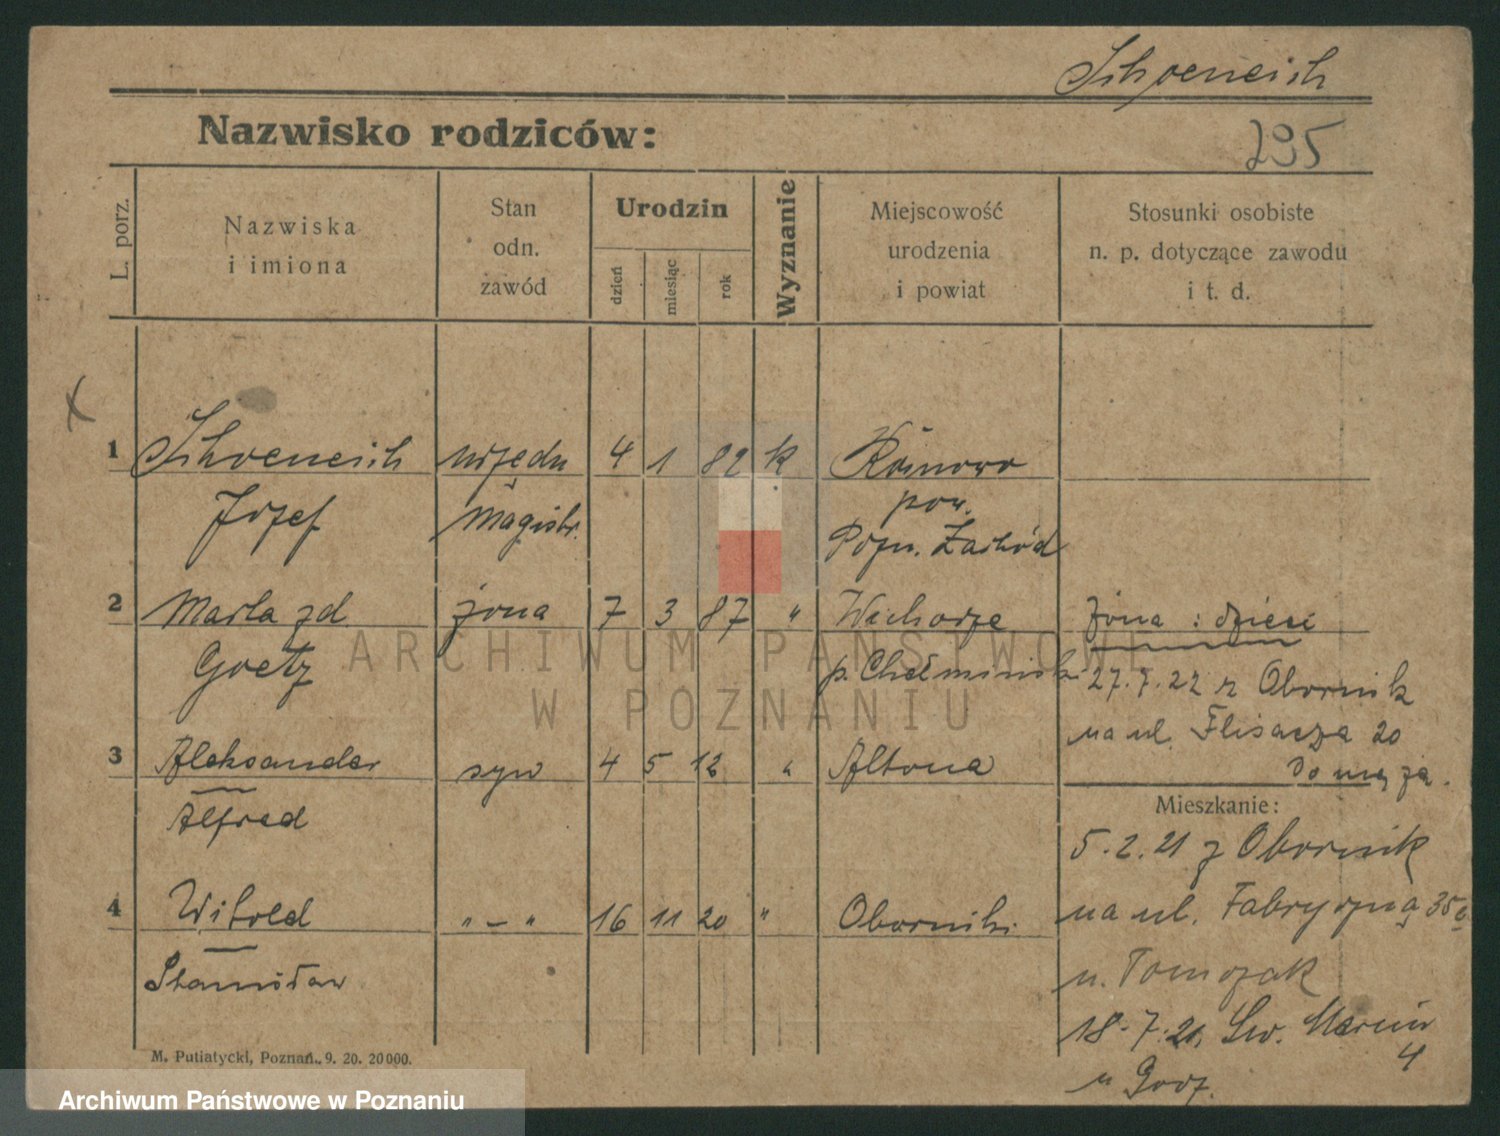 Schoeneich
Nazwisko rodziców:
295
L. porz.
Nazwiska
i imiona
Stan
odn.
zawód
Urodzin
dzień
miesiąc
rok
Wyznanie
Miejscowość
urodzenia
i powiat
Stosunki osobiste
n. p. dotyczące zawodu
i t. d.
x
1 Schoeneich urzędn 4 1 82 k
Józef Magistr. pow.
Pozn. Zachód
2 Maria zd. żona 7 3 87 " Wichorze żona i dzieci
Goetz p. Chełmiński 27.7.22 z Obornik
na ul. Flisacza 20
3 Aleksander syn 4 5 12 " Altona do męża.
Alfred
Mieszkanie:
5.2.21 z Obornik
4 Witold " – " 16 11 20 " Oborniki na ul. Fabryczną 35
Stanisław u. Tomczak
18.7.21. Św. Marcin
4
u
M. Putiatycki, Poznań. 9. 20. 20000.
ARCHIWUM PAŃSTWOWE
W POZNANIU
Archiwum Państwowe w Poznaniu